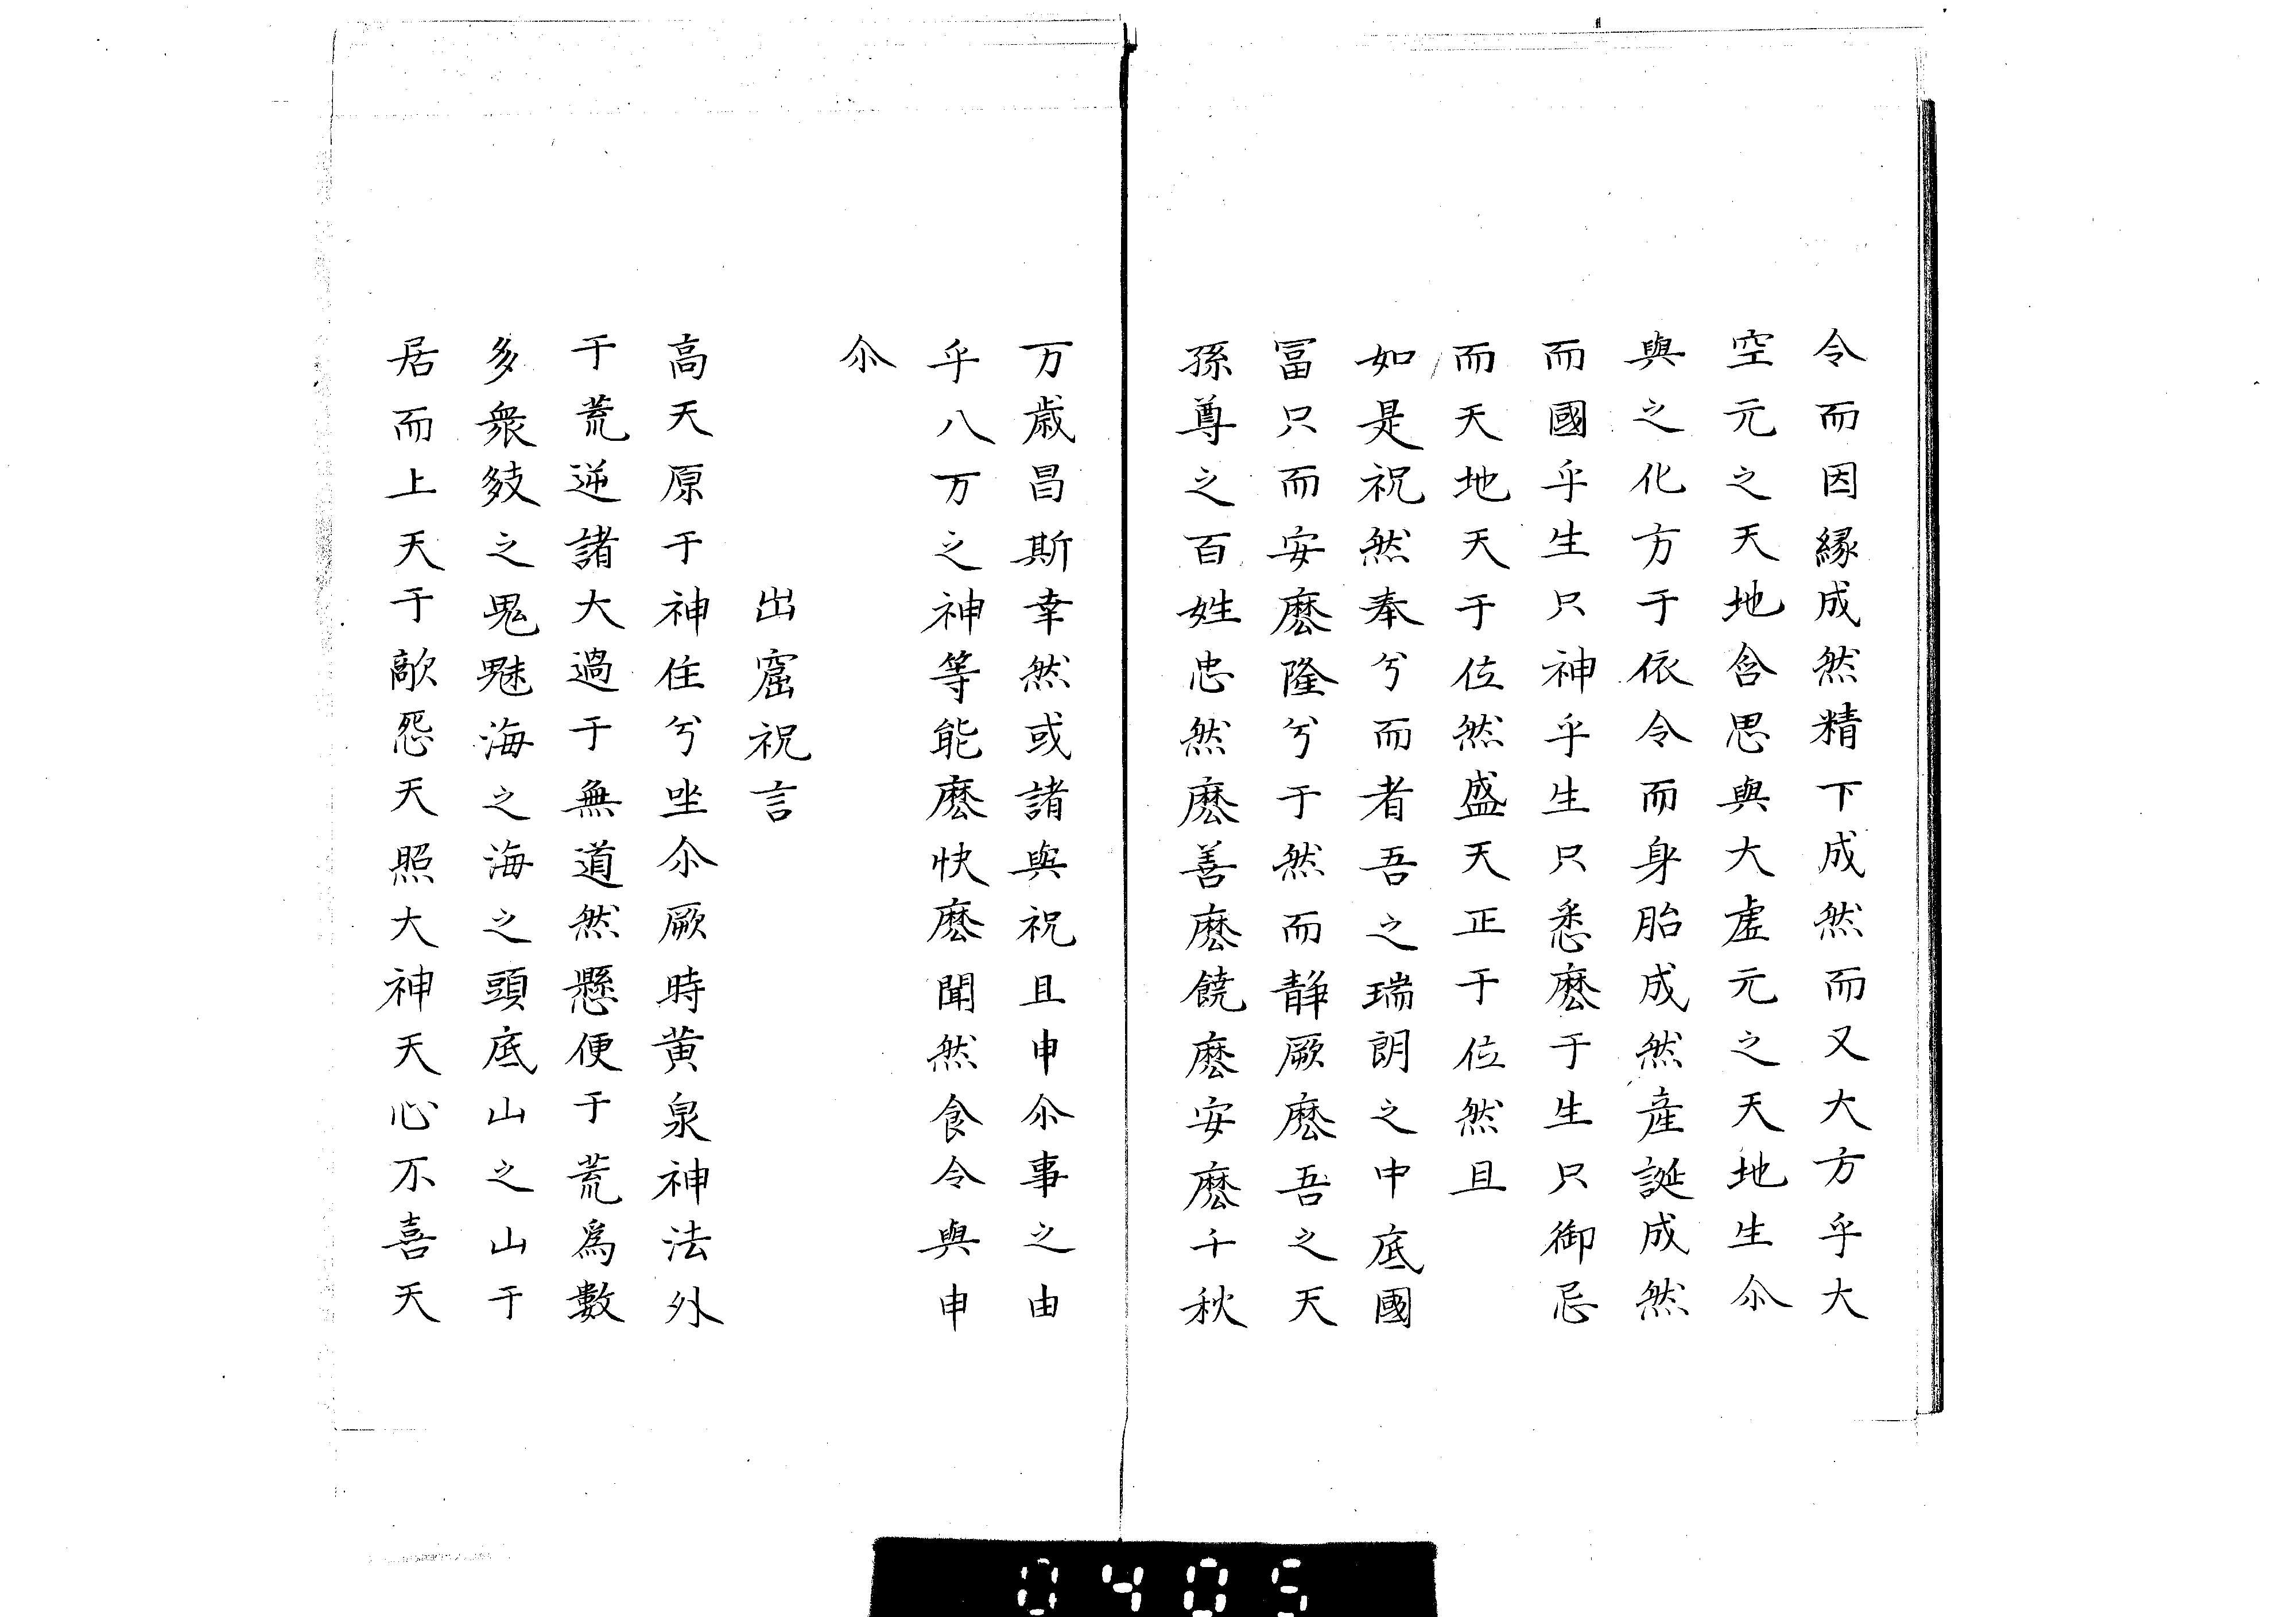 令而因縁成然精下成然而又大方乎大
空元之天地含思與大虚元之天地生尒
與之化方于依令而身胎成然産誕成然
而國乎生只神乎生只悉麽于生只御忌
而天地天于位然盛天正于位然且
如是祝然奉兮而者吾之瑞朗之中底國
冨只而安麽隆兮于然而静厥麽吾之天
孫尊之百姓忠然麽善麽饒麽安麽千秋
万歳昌斯幸然或諸與祝且申尒事之由
乎八万之神等能麽快麽聞然食令與申
尒
出窟祝言
高天原于神住兮坐尒厥時黄泉神法外
于荒逆諸大過于無道然懸便于荒爲數
多衆㩻之鬼魅海之海之頭底山之山于
居而上天于敵怨天照大神天心不喜天
0405